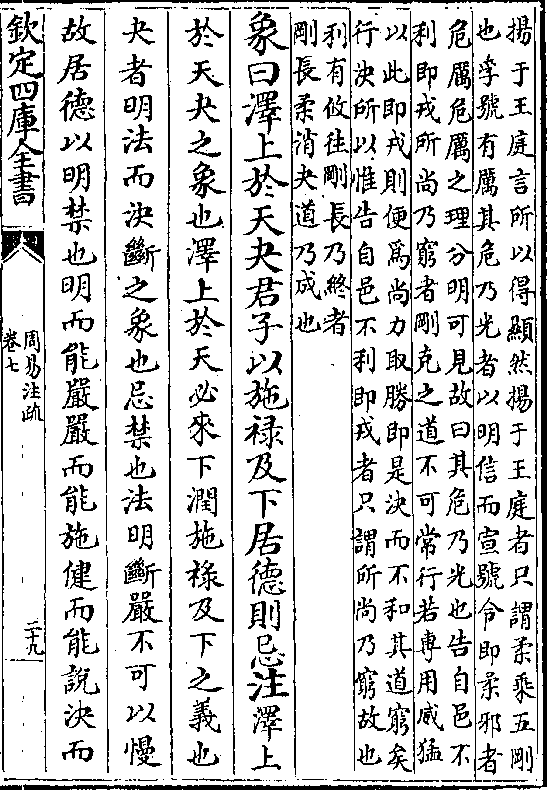 揚于王庭言所以得顯然揚于王庭者只謂柔乘五剛
也孚號有厲其危乃光者以明信而宣號令即柔邪者
危厲危厲之理分明可見故曰其危乃光也告自邑不
利即戎所尚乃窮者剛克之道不可常行若専用威猛
以此即戎則便為尚力取勝即是決而不和其道窮矣
行決所以惟告自邑不利即戎者只謂所尚乃窮故也
利有攸往剛長乃終者
剛長柔消夬道乃成也
象曰澤上於天夬君子以施禄及下居德則忌注澤上
於天夬之象也澤上於天必來下潤施祿及下之義也
夬者明法而決斷之象也忌禁也法明斷嚴不可以慢
故居德以明禁也明而能嚴嚴而能施健而能說決而
欽定四庫全書
周易注疏
卷七
二十九